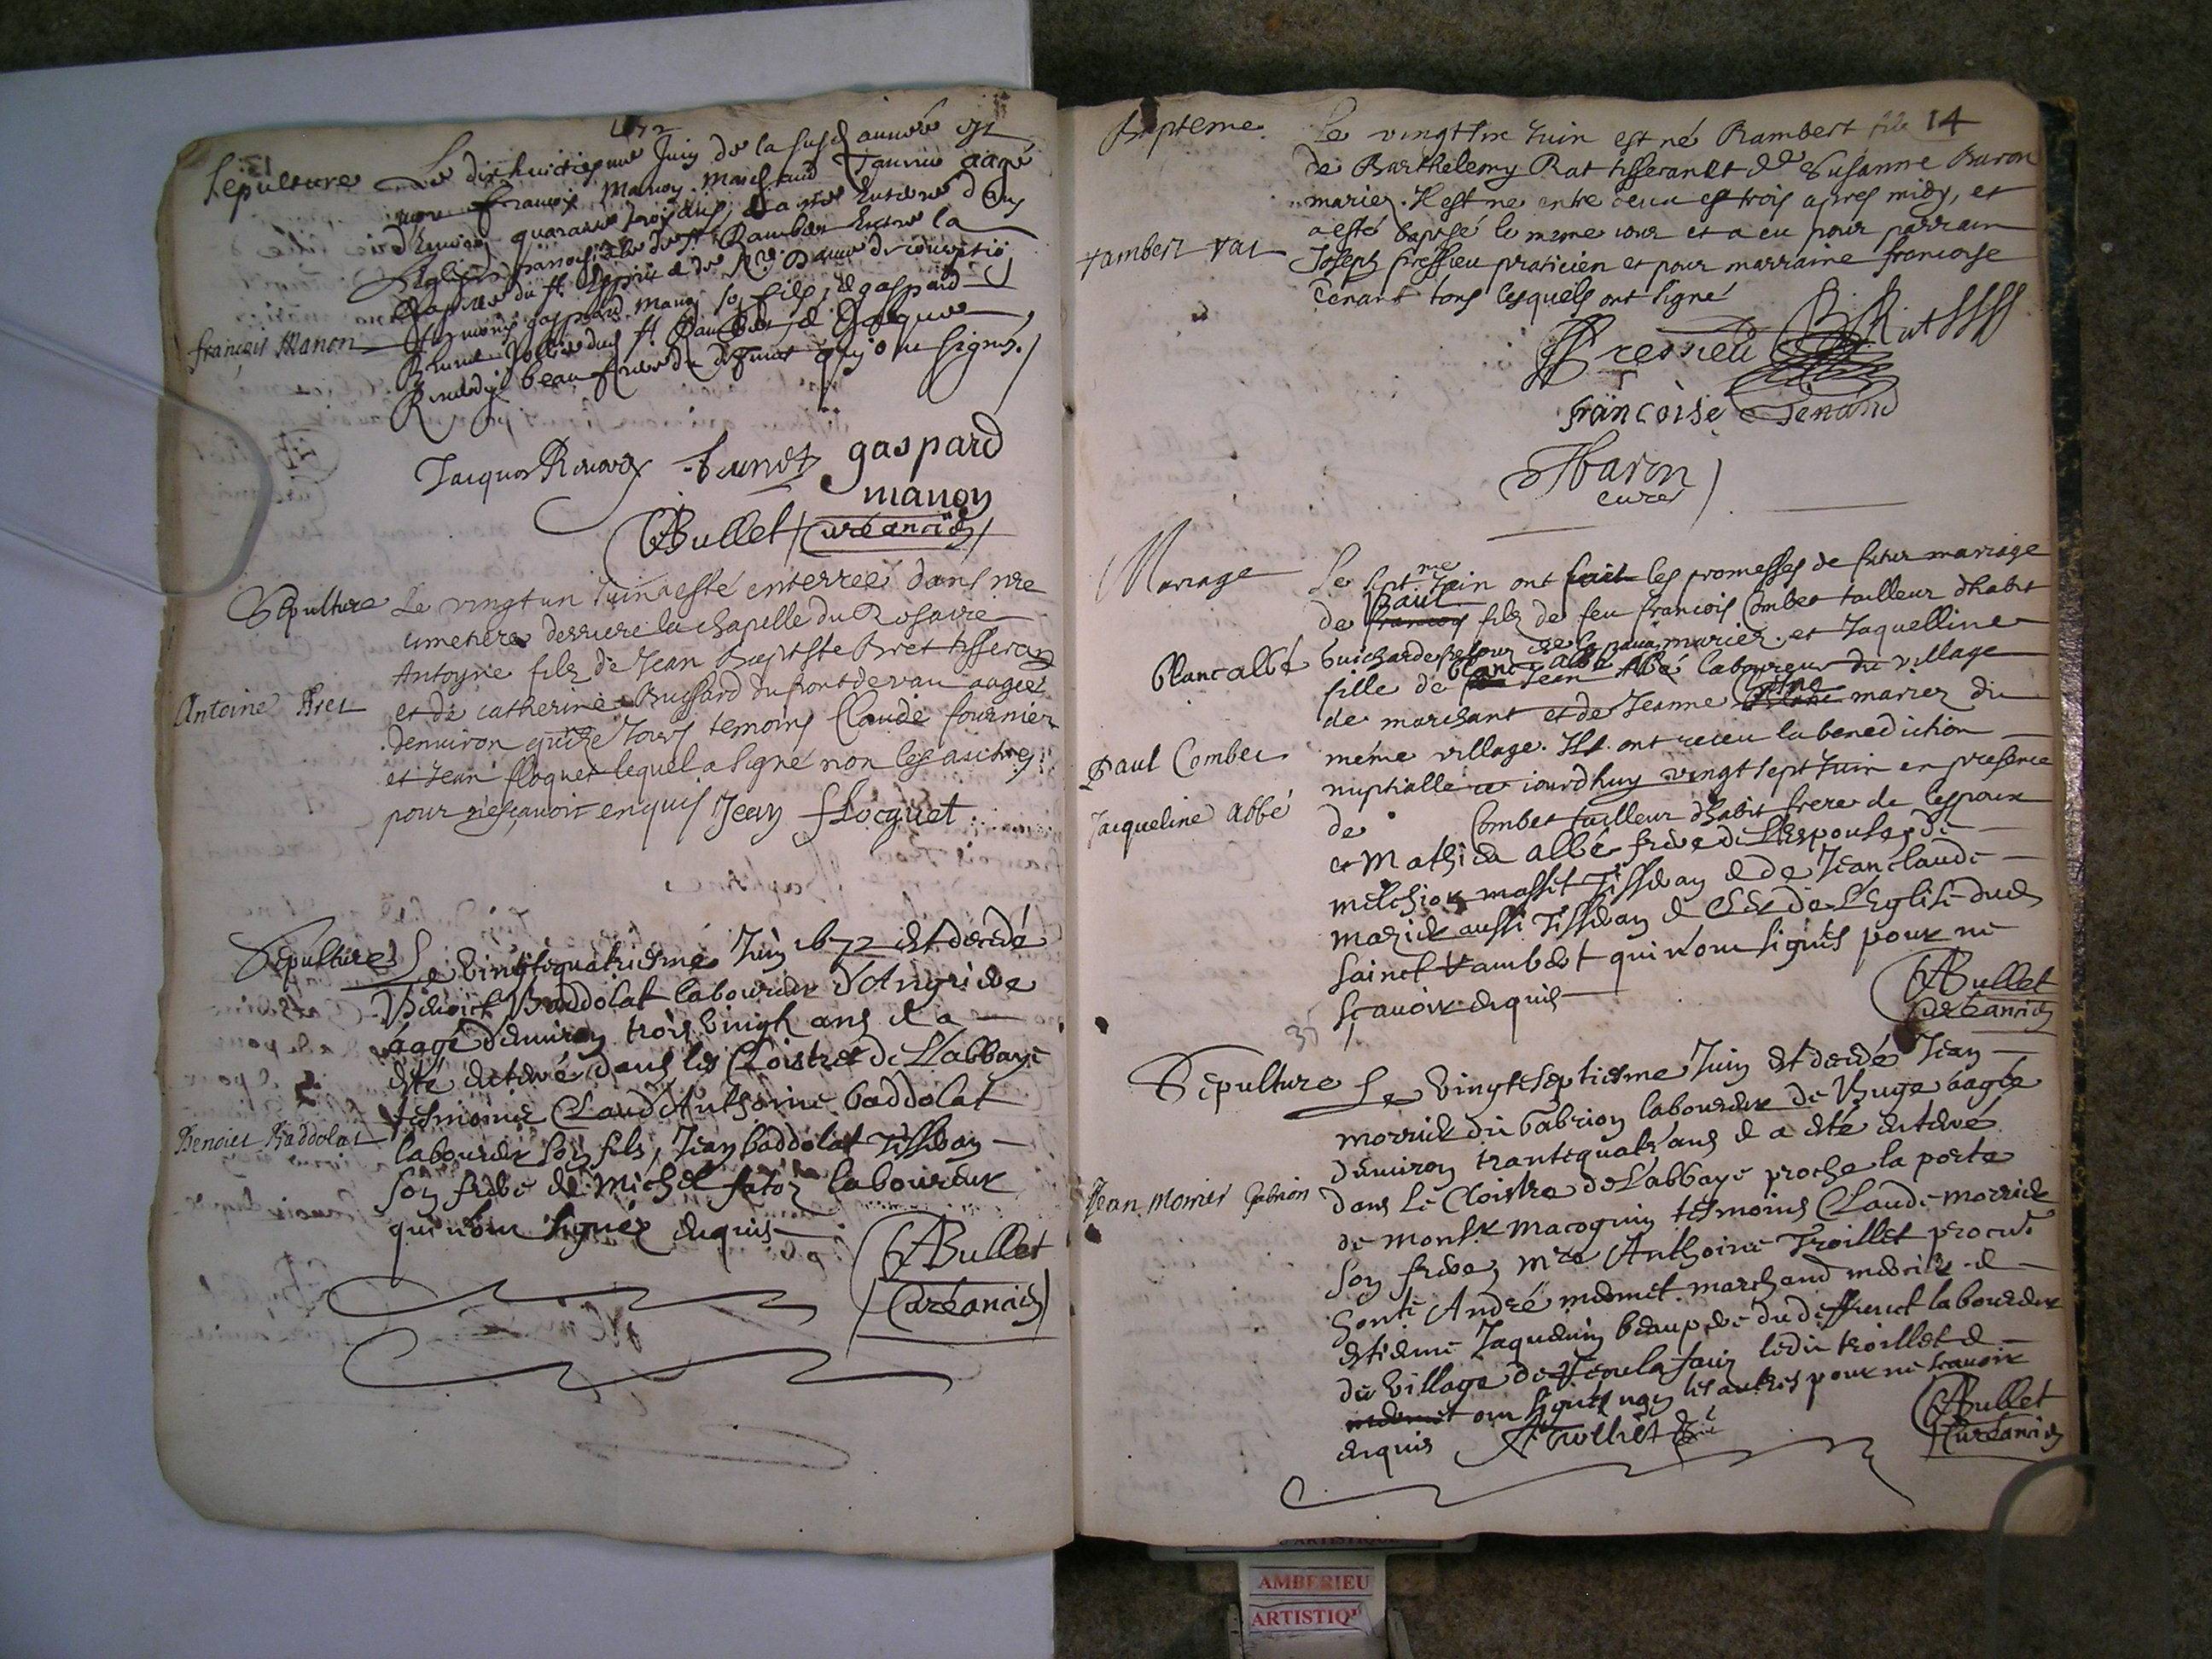 1672
Sepulture
Le dixhuictiesme Juin de la susd année est
mort françois Manon marchand Tanneur aagé
d'Environ quarante trois ans, & a esté Enterré dans
L'Eglise parrochialle de st Rambert Entre la
Chapelle du st Esprit & de Nre Dame de conceptio
tesmoins gaspard manon so fils, & gaspard
Brunet dud st Rambert & Jacques
beaufrere du deffunct qui ont signés
françois Manon
Jacques gaspard
manon
ABullet
Curéancien
Sepulture
Le vingt un Juin a esté enterrée dans nre
cimetiere derriere la chapelle du Rosaire
Antoyne filz de Jean Baptiste Bret tisseran
et de catherine Bussard du pont devau aagee
denuiron quinze Jours temoins Claude fournier
et Jean floquet lequel a signé non les autres
pour ne sçauoir enquis Jean fLocquet
Antoine Bret
Sepulture
Le Vingtequatriesme Juin 1672 est decedé
Benoict Baddolat laboureur d'Angriere
aagé denuiron trois vingtz ans & a
esté enterré dans les Cloistres de L'abbaye
tesmoins Claud Anthoine baddolat
laboureur son fils, Jean baddolat Tisseran
son frere & Michel fator laboureur
qui n'ont signéz enquis
Benoict Baddolat
ABullet
Curéancien
14
Bapteme
Le vingt six Juin est né Rambert fils
de Barthelemy Rat tisserandt & de Susanne Baron
mariez. Il est né entre deux et trois apres midy, et
a esté baptisé le meme iour et a eu pour parrain
Joseph pressieu praticien et pour marraine francoise
tenant tous lesquels ont signé
rambert rat
Pressieu BRat
françoise Tenand
Baron
curé
Mariage
Le septme Juin ont fait les promesses de futur mariage
de Paul francois filz de feu francois Combet tailleur dhabit
mariez et Jaquelline
fille de blanc albé Jean Albé laboureur du village
de marchant et de Jeanne mariez du
méme village. Ils ont receu la benediction
nuptialle ce iourdhuy vingt sept Juin en presence
de Combet tailleur dhabit frere de lespoux
et Mathieu albé frere de L'Espouse, de
melchior masset Tisseran & de Jean claude
marier aussi Tisseran & Clerc de L'Eglise dud
sainct rambert qui n'ont signés pour ne
sçavoir enquis
blanc albé
Paul Combet
Jacqueline abbé
ABullet
Curéancien
35
Sepulture
Le Vingtseptiesme Juin est decedé Jean
morrier du Gabrion laboureur de Buge aagée
d'enuiron trantequatre ans & a esté enterré
dans Le Cloistre de L'abbaye proche la porte
de monsr macognin tesmoins Claude morrier
son frere, mre Anthoine Troillet procur
André mermet marchand mercier &
estienne Jaquemin beaupere du deffunct laboureur
du Village de ledit troillet &
mermet ont signés non les autres pour ne scauoir
enquis ATroillet
Jean Morrier Gabrion
ABullet
Curéancien
AMBERIEU
ARTISTIQU